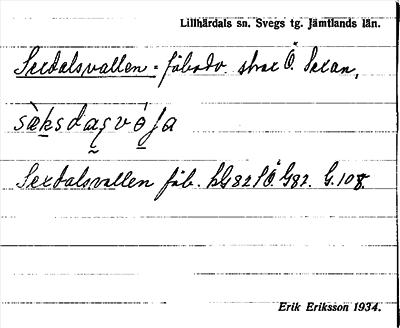 Lillhärdals sn. Svegs tg. Jämtlands län.
Sexdalsvallen = fäbodv. strax Ö. Sexan,
sæksdaςvəɟa
Sexdalsvallen fäb. kG82 G82. G.108.
Erik Eriksson 1934.